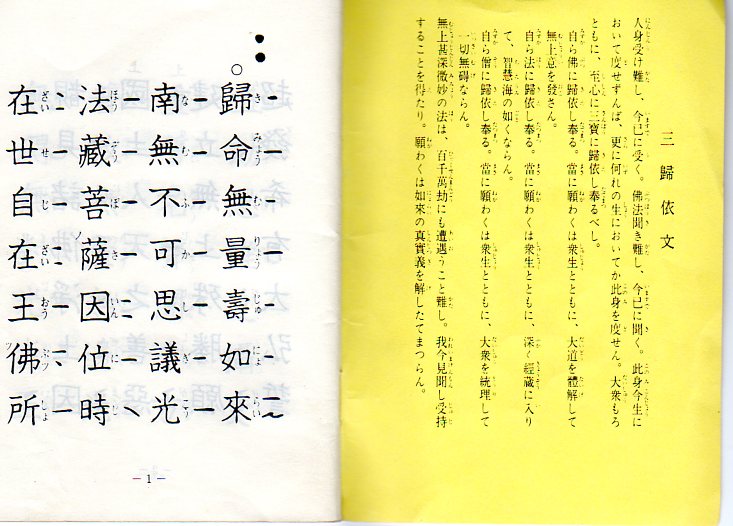 三歸依文
人身受け難し、今已に受く。佛法聞き難し、今已に聞く。此身今生に
おいて度せずんば、更に何れの生においてか此身を度せん。大衆もろ
ともに、至心に三寶に歸依し奉るべし。
自ら佛に歸依し奉る。當に願わくは衆生とともに、大道を體解して
無上意を發さん。
自ら法に歸依し奉る。當に願わくは衆生とともに、深く經藏に入り
て、智慧海の如くならん。
自ら僧に歸依し奉る。當に願わくは衆生とともに、大衆を統理して
一切無碍ならん。
無上甚深微妙の法は、百千萬劫にも遭遇うこと難し。我今見聞し受持
することを得たり。願わくは如來の真實義を解したてまつらん。
歸命無量壽如來
南無不可思議光
法藏菩薩因位時
在世自在王佛所
1